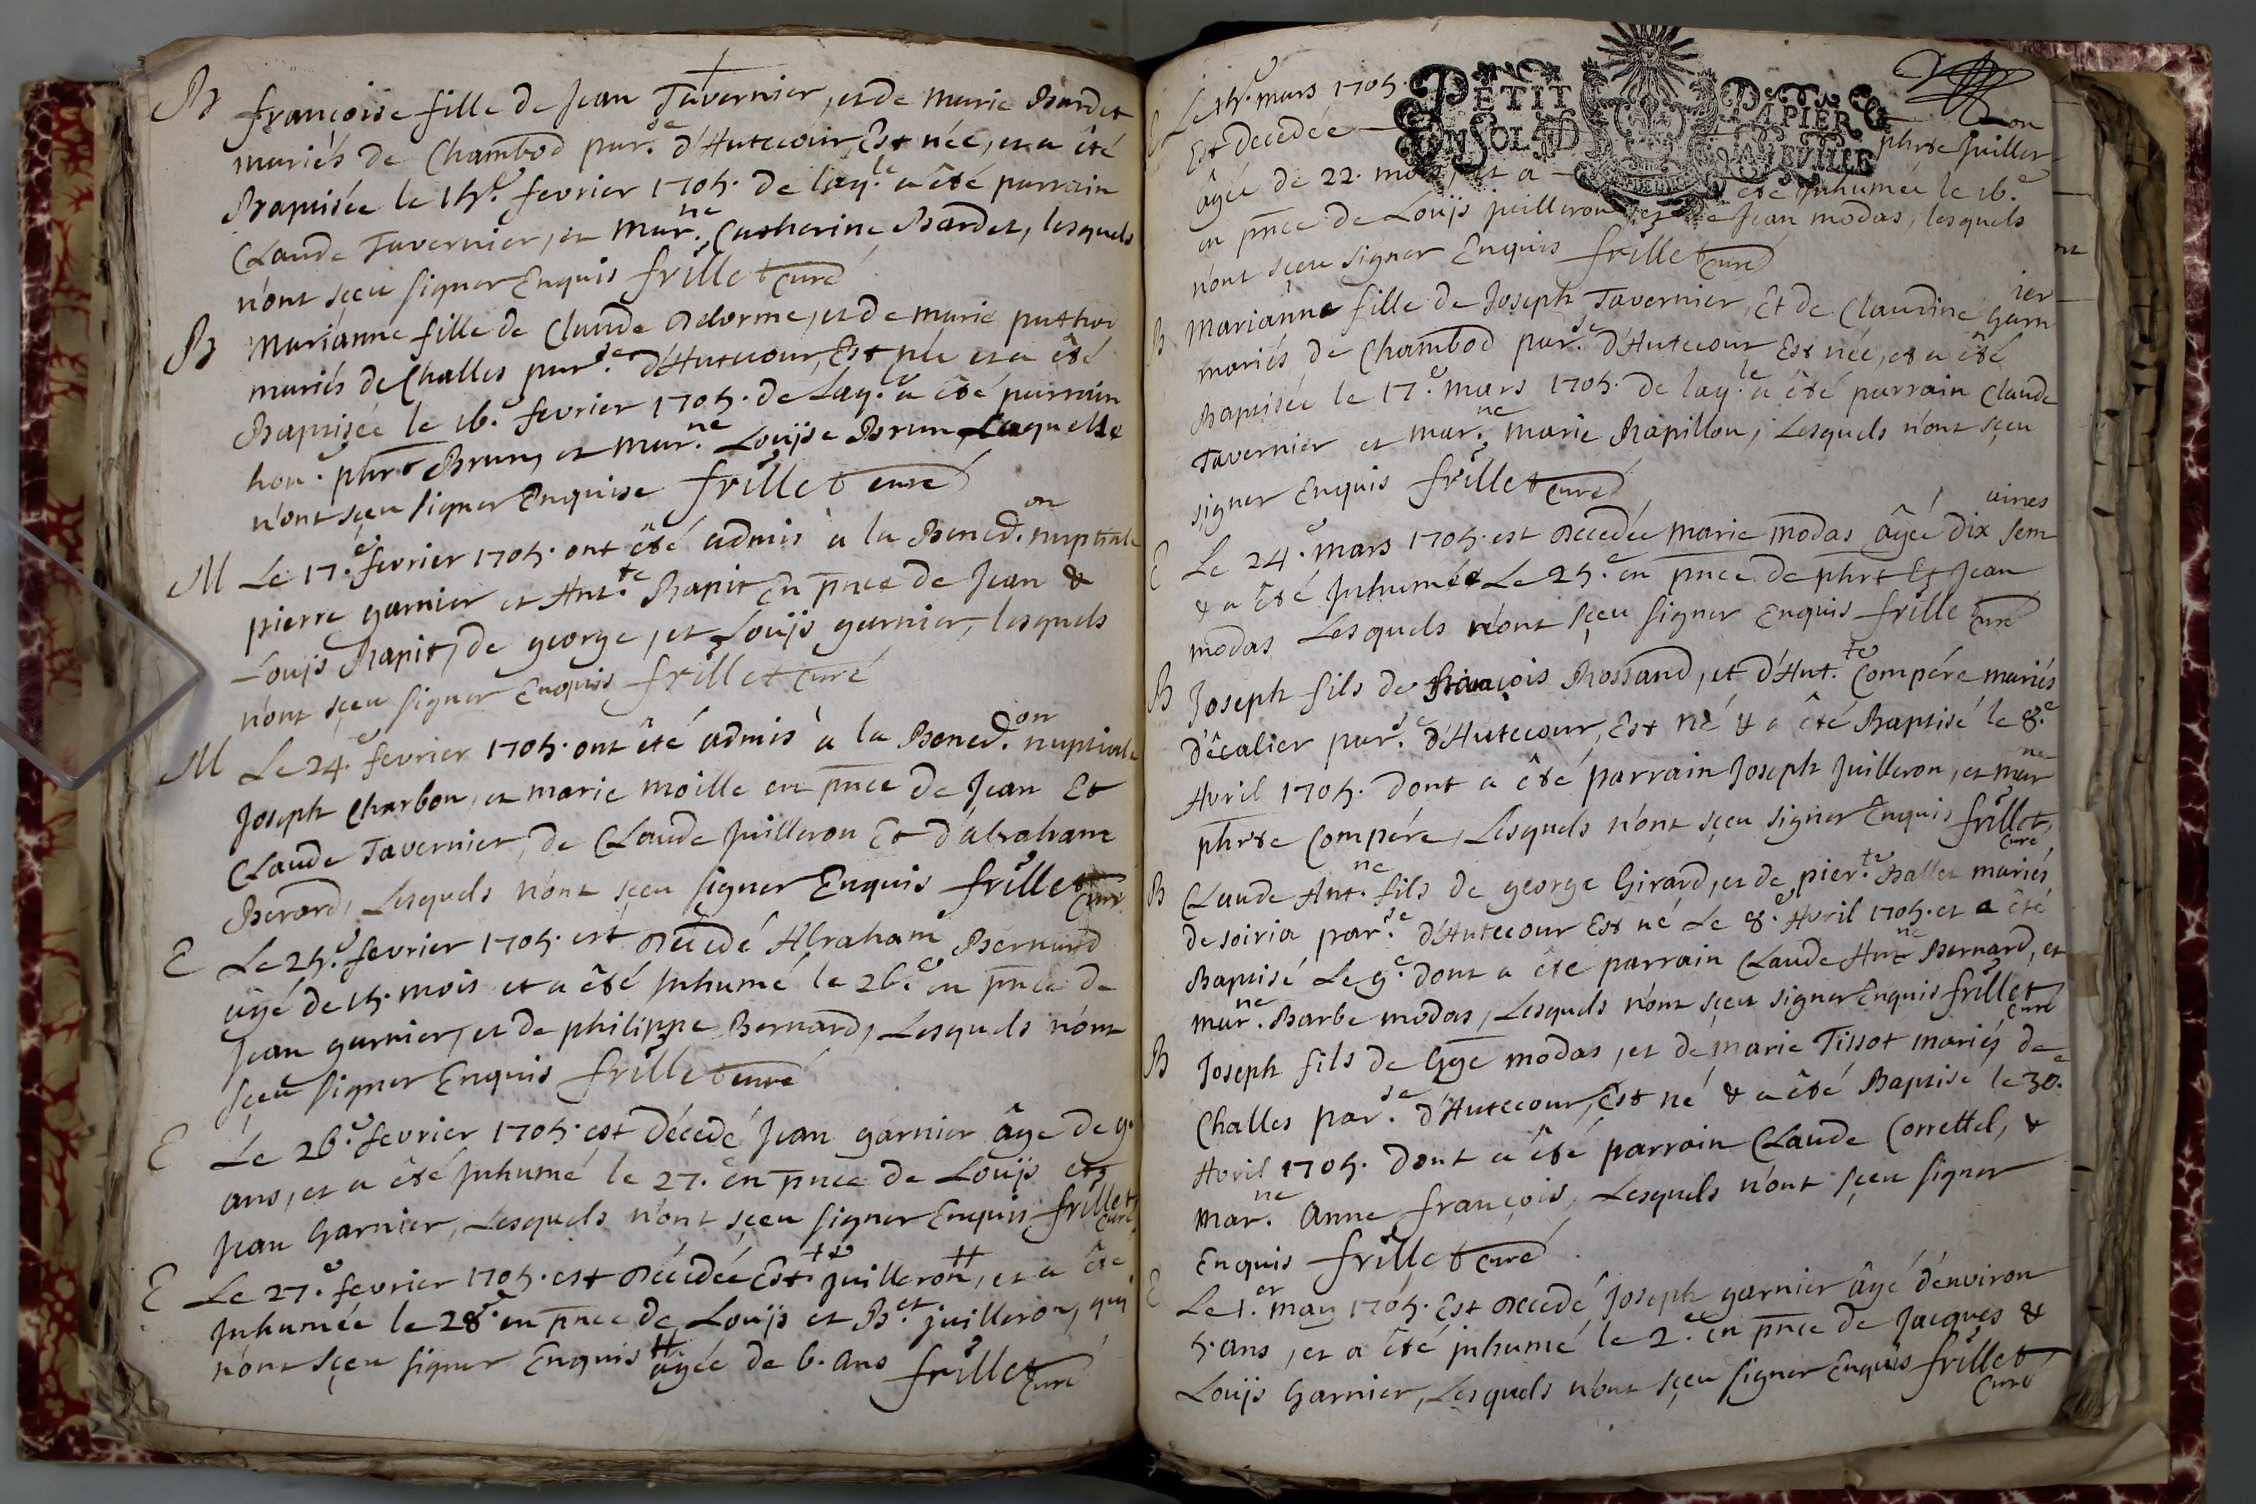 B françoise fille de Jean Tavernier, et de marie Bardet
mariés de Chambod par.se d'Hutecour, Est née, et a êté
Baptisée le 15.e fevrier 1705. de laq.le a êté parrain
Claude Tavernier, et mar.ne Catherine Bardet, lesquels
n'ont sçeu signer Enquis frillet curé
B Marianne fille de Claude Delorme, et de marie puthod
mariés de Challes par.se d'Hutecour, Est née et a êté
Baptisée le 16.e fevrier 1705. de Laq.le a êté parrain
hon. phrt Brun, et mar.ne Louïse Brun, Laquelle
n'ont sçeu signer Enquise frillet curé
M Le 17.e fevrier 1705. ont êté admis à la Bened.on nuptiale
pierre garnier et Ant.te Rapit En pnce de Jean &
Louïs Rapit, de george, et Louïs garnier, lesquels
n'ont sçeu signer Enquis frillet curé
M Le 24.e fevrier 1705. ont êté admis à la Bened.on nuptiale
Joseph Charbon, et marie moille en pnce de Jean Et
Claude Tavernier, de Claude Juilleron Et d'abraham
Berard, Lesquels n'ont sçeu signer Enquis frillet curé
E Le 25.e fevrier 1705. est décedé Abraham Bernard
âgé de 15. mois et a êté Inhumé le 26.e en pnce de
Jean garnier, et de philippe Bernard, Lesquels n'ont
sçeu signer Enquis frillet curé
E Le 26.e fevrier 1705. est décedé Jean garnier âge de 9.
ans, et a êté Inhumé le 27.e en pnce de Louïs et
Jean Garnier, Lesquels n'ont sçeu signer Enquis frillet curé
E Le 27.e fevrier 1705. est décedée Est.te Juilleron, et a êté
Inhumée le 28.e en pnce de Louïs et B.et Juilleron, qui
n'ont sçeu signer Enquis âgée de 6. ans frillet curé
E Le 15.e mars 1705. PETIT PAPIER
Est decedée EN SOLS phrte Juiller
on
âgée de 22. mois, et a êté Inhumée le 16.e
en pnce de Louïs Juilleron, et de Jean modas, lesquels
n'ont sçeu signer Enquis frillet curé
B Marianne fille de Joseph Tavernier, Et de Claudine Garn
ier
mariés de Chambod par.se d'Hutecour Est née, et a êté
Baptisée le 17.e mars 1705. de laq.le a êté parrain Claude
Tavernier et mar.ne marie Rapillon, Lesquels n'ont sçeu
signer Enquis frillet curé
E Le 24.e mars 1705. est décedée marie modas âgée dix sem
aines
& a êté Inhumée Le 25.e en pnce de phrt Et Jean
modas Lesquels n'ont sçeu signer Enquis frillet curé
B Joseph fils de françois Rossand, et d'Ant.te Compére mariés
d'êcalier par.se d'Hutecour, Est né & a êté Baptisé le 8.e
Avril 1705. Dont a êté parrain Joseph Juilleron, et mar.ne
phrte Compére, Lesquels n'ont sçeu signer Enquis frillet, curé
B Claude Ant.ne fils de george Girard, et de pier.te Ballet mariés
de soiria par.se d'Hutecour Est né Le 8.e Avril 1705. et a êté
Baptisé Le 9.e dont a êté parrain Claude Ant.ne Bernard, et
mar.ne Barbe modas, Lesquels n'ont sçeu signer Enquis frillet curé
B Joseph fils de Gge modas, et de marie Tissot mariés de
Challes par.se d'Hutecour, Est né & a êté Baptisé le 30.e
Avril 1705. Dont a êté parrain Claude Correttel, &
mar.ne Anne françois, Lesquels n'ont sçeu signer
Enquis frillet curé
E Le 1.er may 1705. Est décedé Joseph garnier âgé d'environ
5. ans, et a êté inhumé le 2.e en pnce de Jacques &
Louïs Garnier, Lesquels n'ont sçeu signer Enquis frillet
curé